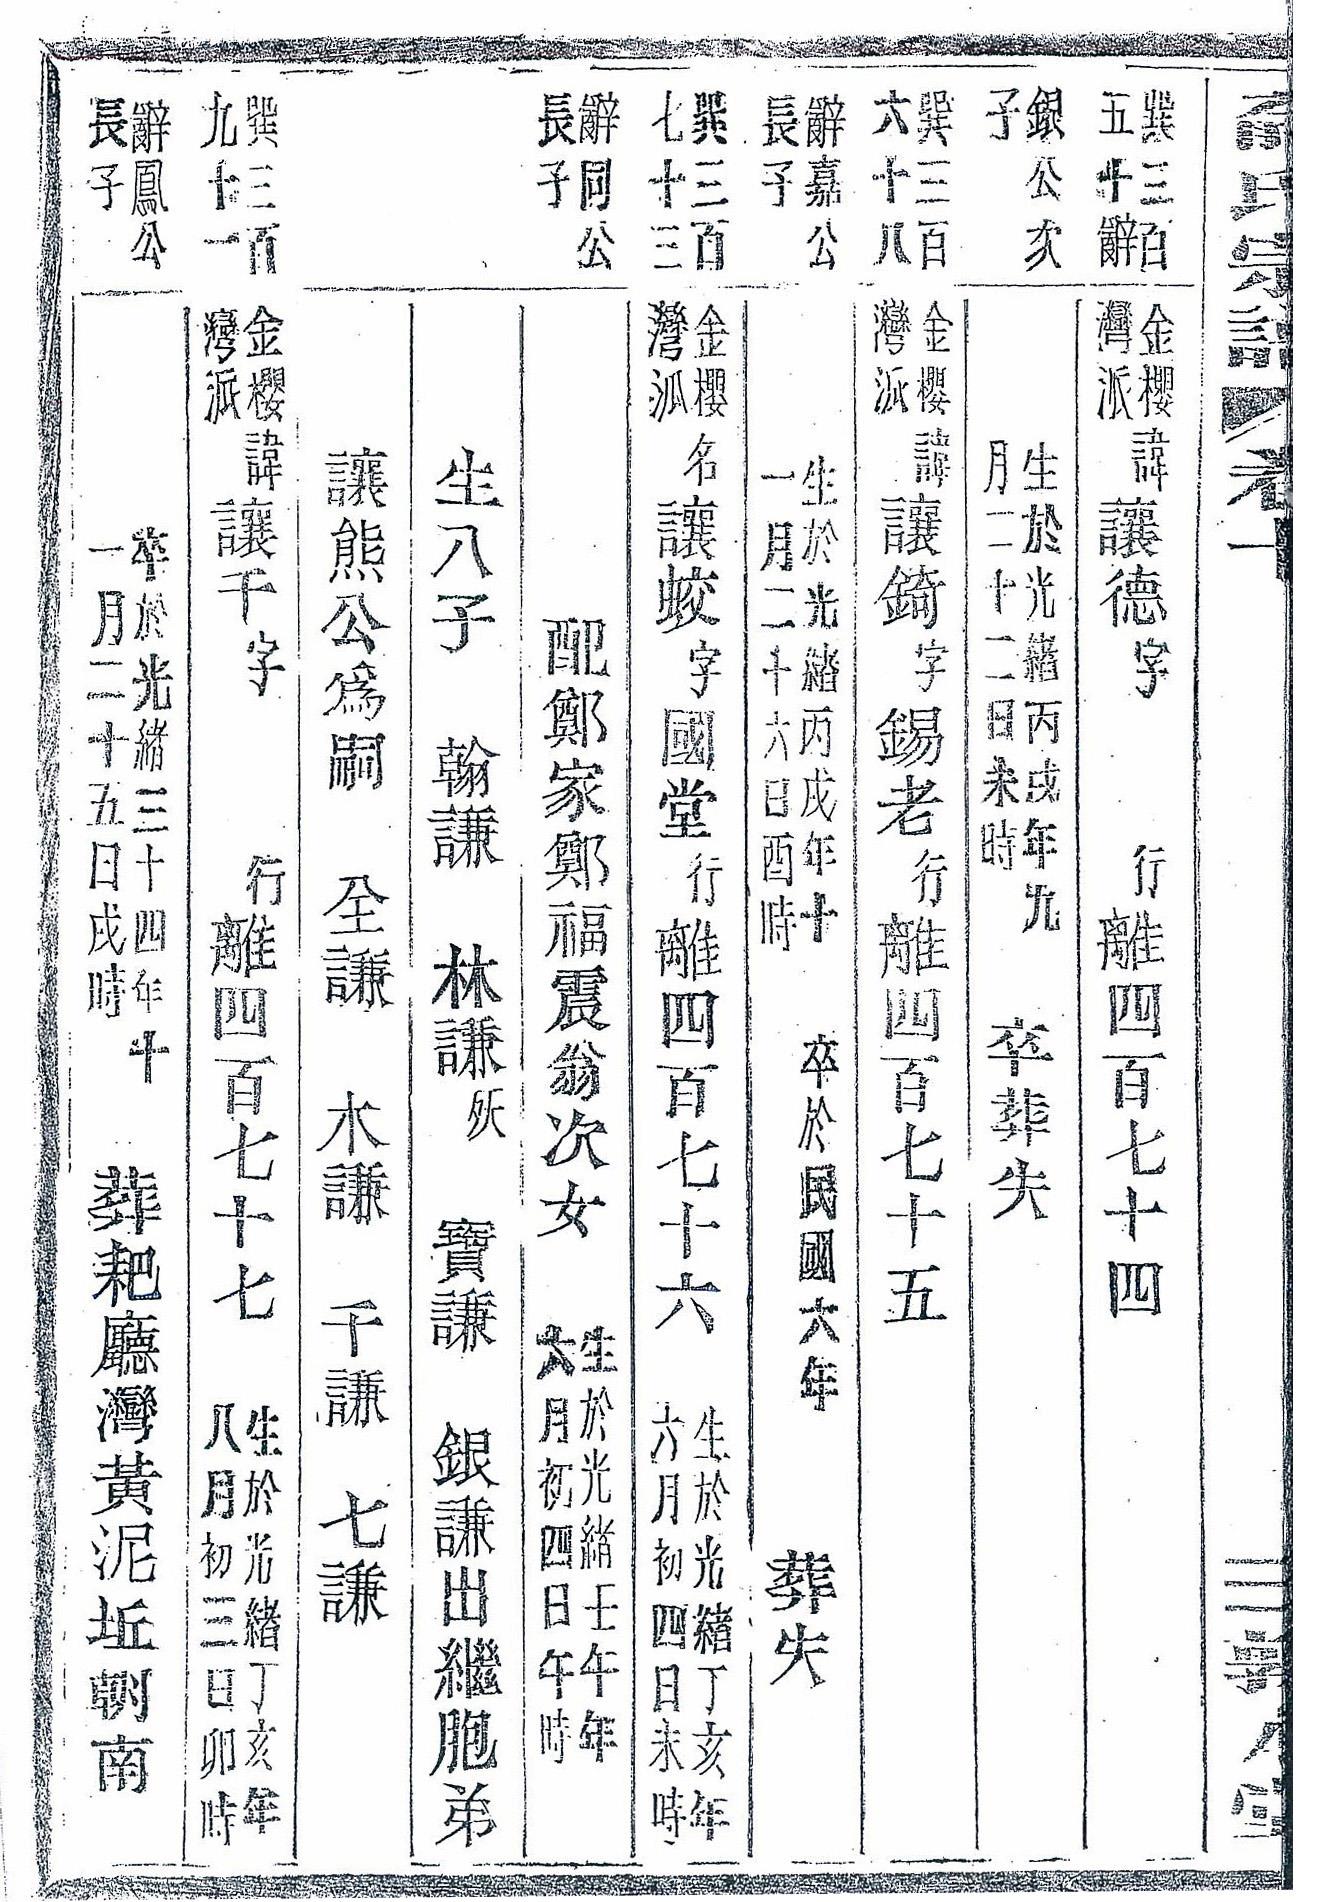 氏宗譜 卷十
巽三百五十辭銀公次子
金櫻灣派 諱讓德字 行離四百七十四
生於光緒丙戌年九月二十二日未時 卒葬失
巽三百六十八辭嘉公長子
金櫻灣派 諱讓錡字錫老行離四百七十五
生於光緒丙戌年十一月二十六日酉時 卒於民國六年 葬失
巽三百七十三辭同公長子
金櫻灣派 名讓蛟字國堂行離四百七十六 生於光緒丁亥年六月初四日未時
配鄭家鄭福震翁次女 生於光緒壬午年六月初四日午時
生八子 翰謙 林謙殀 寶謙 銀謙出繼胞弟
讓熊公爲嗣 全謙 木謙 千謙 七謙
巽三百九十一辭鳳公長子
金櫻灣派 諱讓千字 行離四百七十七 生於光緒丁亥年八月初三日卯時
卒於光緒三十四年十一月二十五日戌時 葬耙廳灣黃泥坵朝南